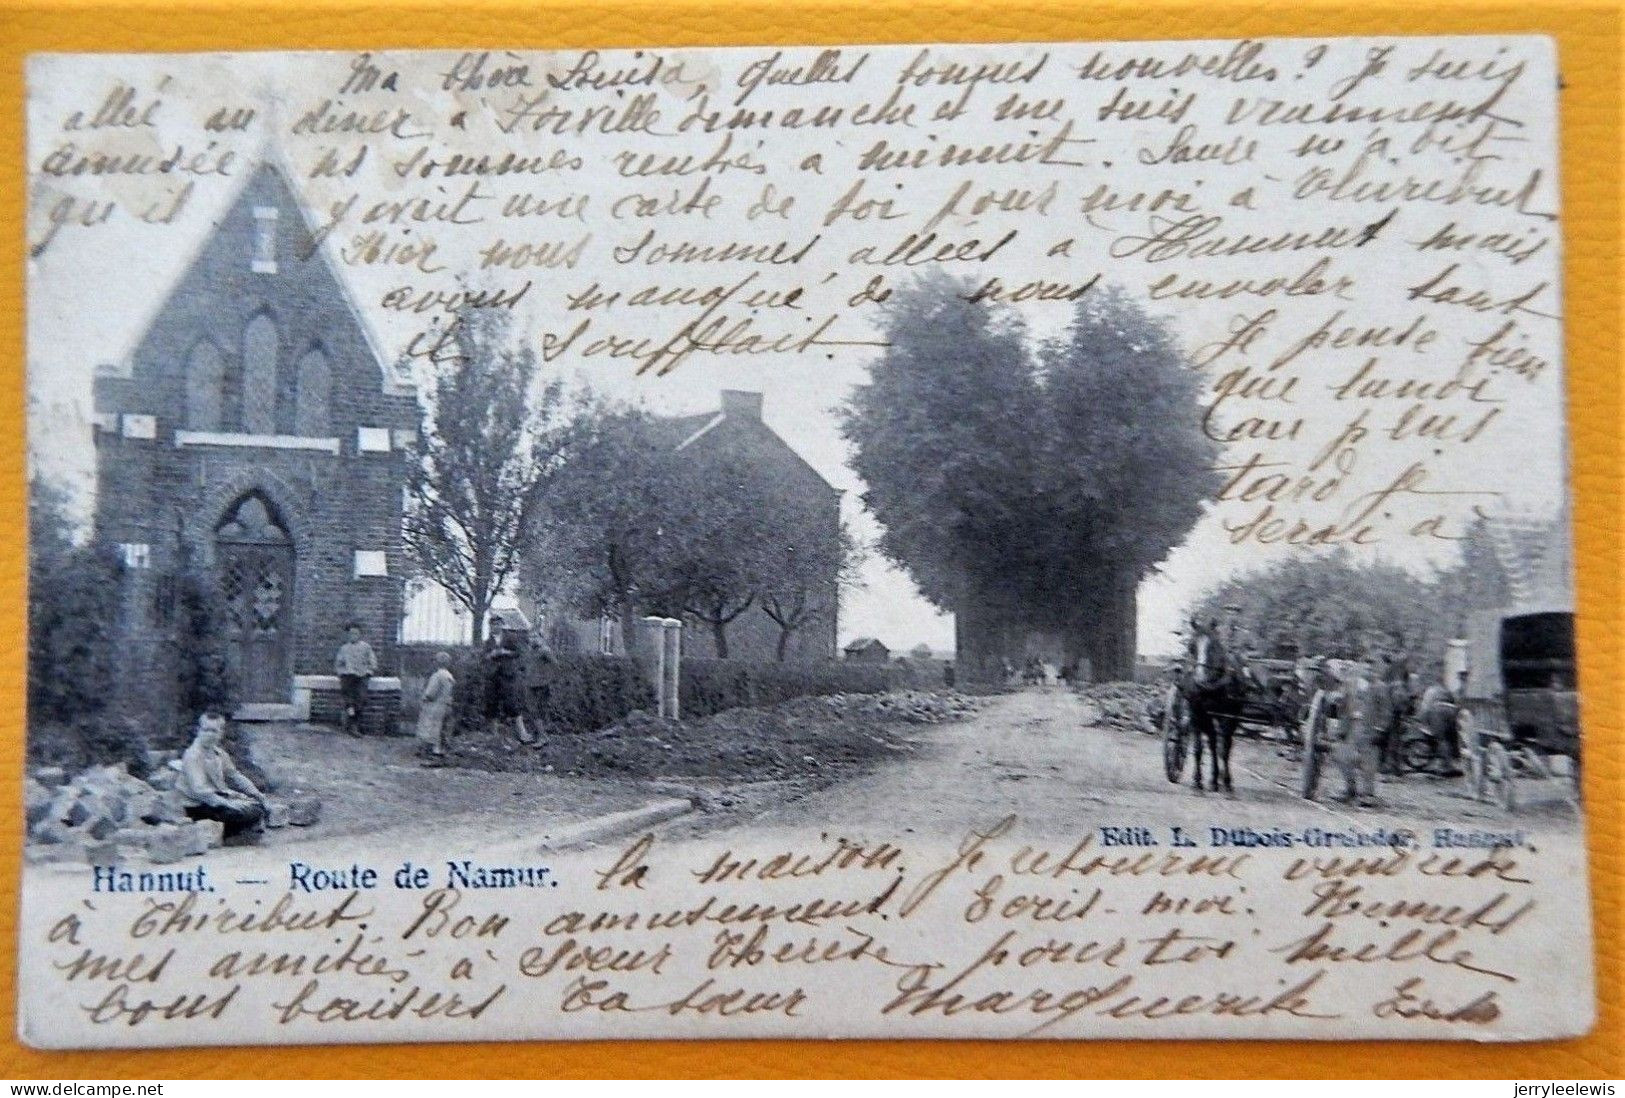 Ma chère Louisa, quelles bonnes nouvelles? Je suis
allée au diner à Forville dimanche et me suis vraiment
amusée ns sommes rentrés à minuit. m'a dit
qu'il y avait une carte de toi pour moi à Thiribut
Hier nous sommes allées à Hannut mais
avons manqué de nous envoler tant
il soufflait.
Je pense bien
que lundi
au plus
tard je
serai à
Edit. L. Dubois-Grainder, Hannut.
Hannut. — Route de Namur.
la maison. Je retourne vendredi
à Thiribut. Bon amusement. Ecris-moi. Remets
mes amitiés à Sœur Thérèse pour toi mille
bons baisers Ta sœur Marguerite
jerryleelewis